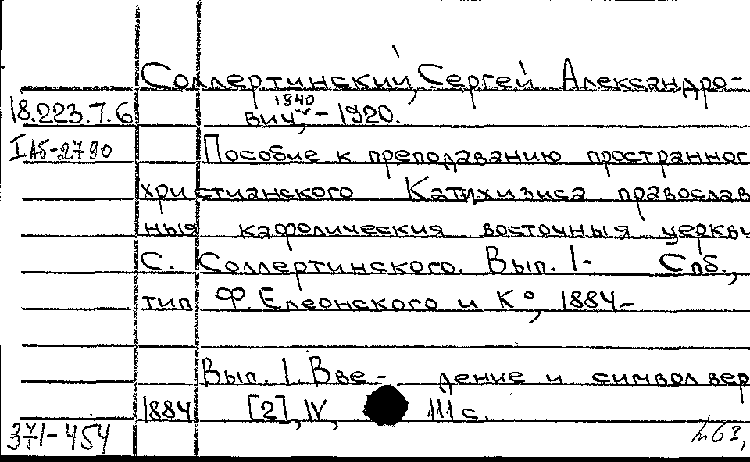 Соллертинский, Сергей Александро-
18.223.7.6 вич, 1840 – 1920.
I А5-2790 Пособие к преподаванию пространног
христианского Катихизиса православ
ныя кафолическия восточныя церкви
С. Соллертинского. Вып. 1- Спб.,
тип Ф. Елеонского и К°, 1884-
Вып. 1. Вве- дение и символ вер
1884 [2], IV, 111 с.
-454